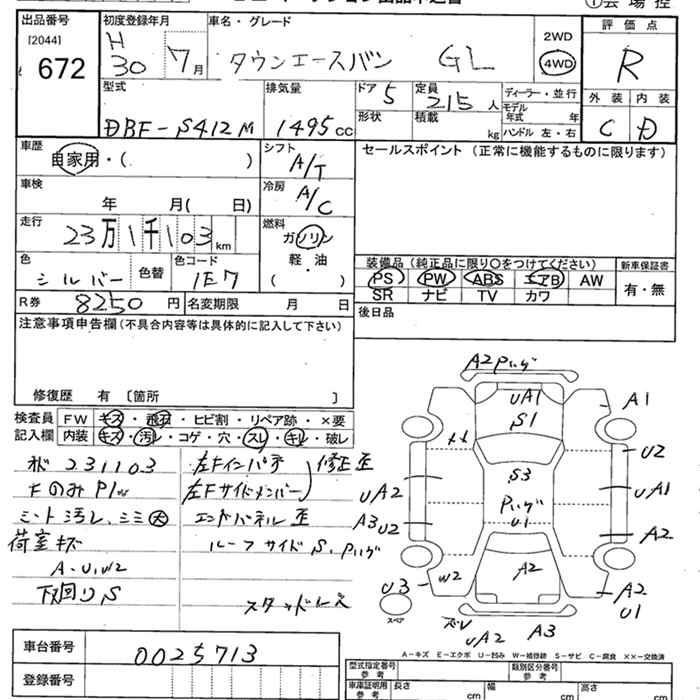 出品番号
[2044]
672
初度登録年月
H
30 7月
車名・グレード
タウンエースバン GL
2WD
4WD
評価点
R
外装 内装
C D
型式
DBF-S412M
排気量
1495cc
ドア
5
形状
定員
2/5人
積載
kg
ディーラー・並行
モデル年式 年
ハンドル 左・右
車歴
自家用・( )
シフト
A/T
セールスポイント(正常に機能するものに限ります)
車検
年 月( 日)
冷房
A/C
走行
23万1千103km
燃料
ガソリン
軽・油
( )
色
シルバー
色替
色コード
1E7
装備品(純正品に限り○をつけてください)
PS PW ABS エアB AW
SR ナビ TV カワ
新車保証書
有・無
R券 8250円
名変期限 月 日
後日品
注意事項申告欄(不具合内容等は具体的に記入して下さい)
修復歴 有 〔箇所 〕
検査員
記入欄
FW キズ・飛石・ヒビ割・リペア跡・×要
内装 キズ・汚レ・コゲ・穴・スレ・キレ・破レ
231103
シート汚レ、シミ大
荷室キズ
A・U、W2
下回りS
左Fインパネ
左Fサイドメンバー
修正歪
エンドパネル歪
ルーフサイドS、Pハゲ
スタッドレス
A2 Pハゲ
UA1
S1
A1
U2
S3
Pハゲ
U1
UA2
UA1
A3
U2
A2
A2
W2
U3
スペア
A2
U1
UA2
A3
A-キズ E-エクボ U-凹み W-補修跡 S-サビ C-腐食 ××-交換済
車台番号
0025713
登録番号
型式指定番号
参考
類別区分番号
参考
車庫証明用
参考
長さ cm
幅 cm
高さ cm